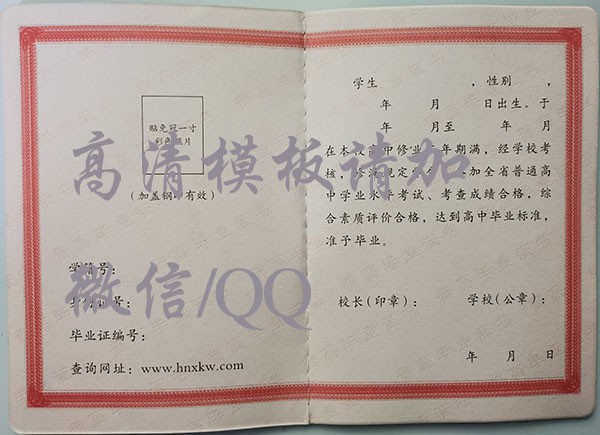 贴免冠一寸
彩色照片
(加盖钢 有效)
学籍号:
号:
毕业证编号:
查询网址: www.hnxkw.com
学生 , 性别 ,
年 月 日出生。于
年 月至 年 月
在本校高中修业 年期满, 经学校考
核, 修满规定学分, 参加全省普通高
中学业水平考试、考查成绩合格, 综
合素质评价合格, 达到高中毕业标准,
准予毕业。
校长(印章): 学校(公章):
年 月 日
高清模板请加
微信/QQ